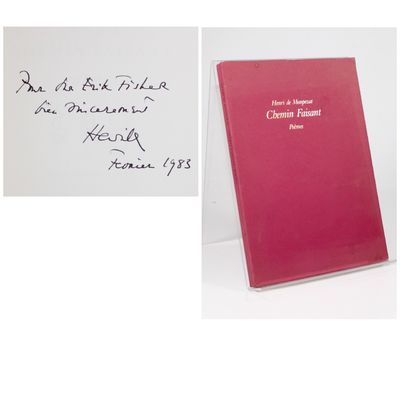 Pour Mr Erik Fisher
bien sincèrement
Henrik
Février 1983
Henri de Monpezat
Chemin Faisant
Poèmes